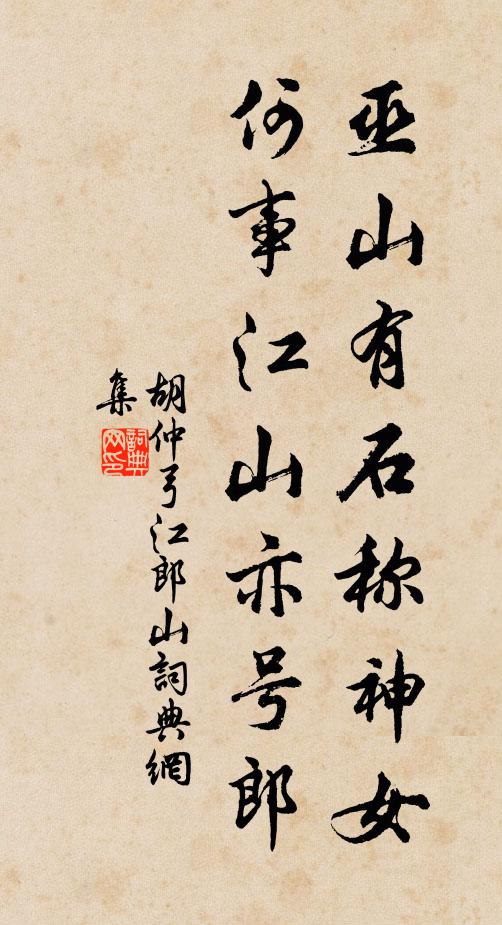 巫山有石称神女
何事江山亦号郎
胡仲弓江郎山詞典網
集
詞典网印